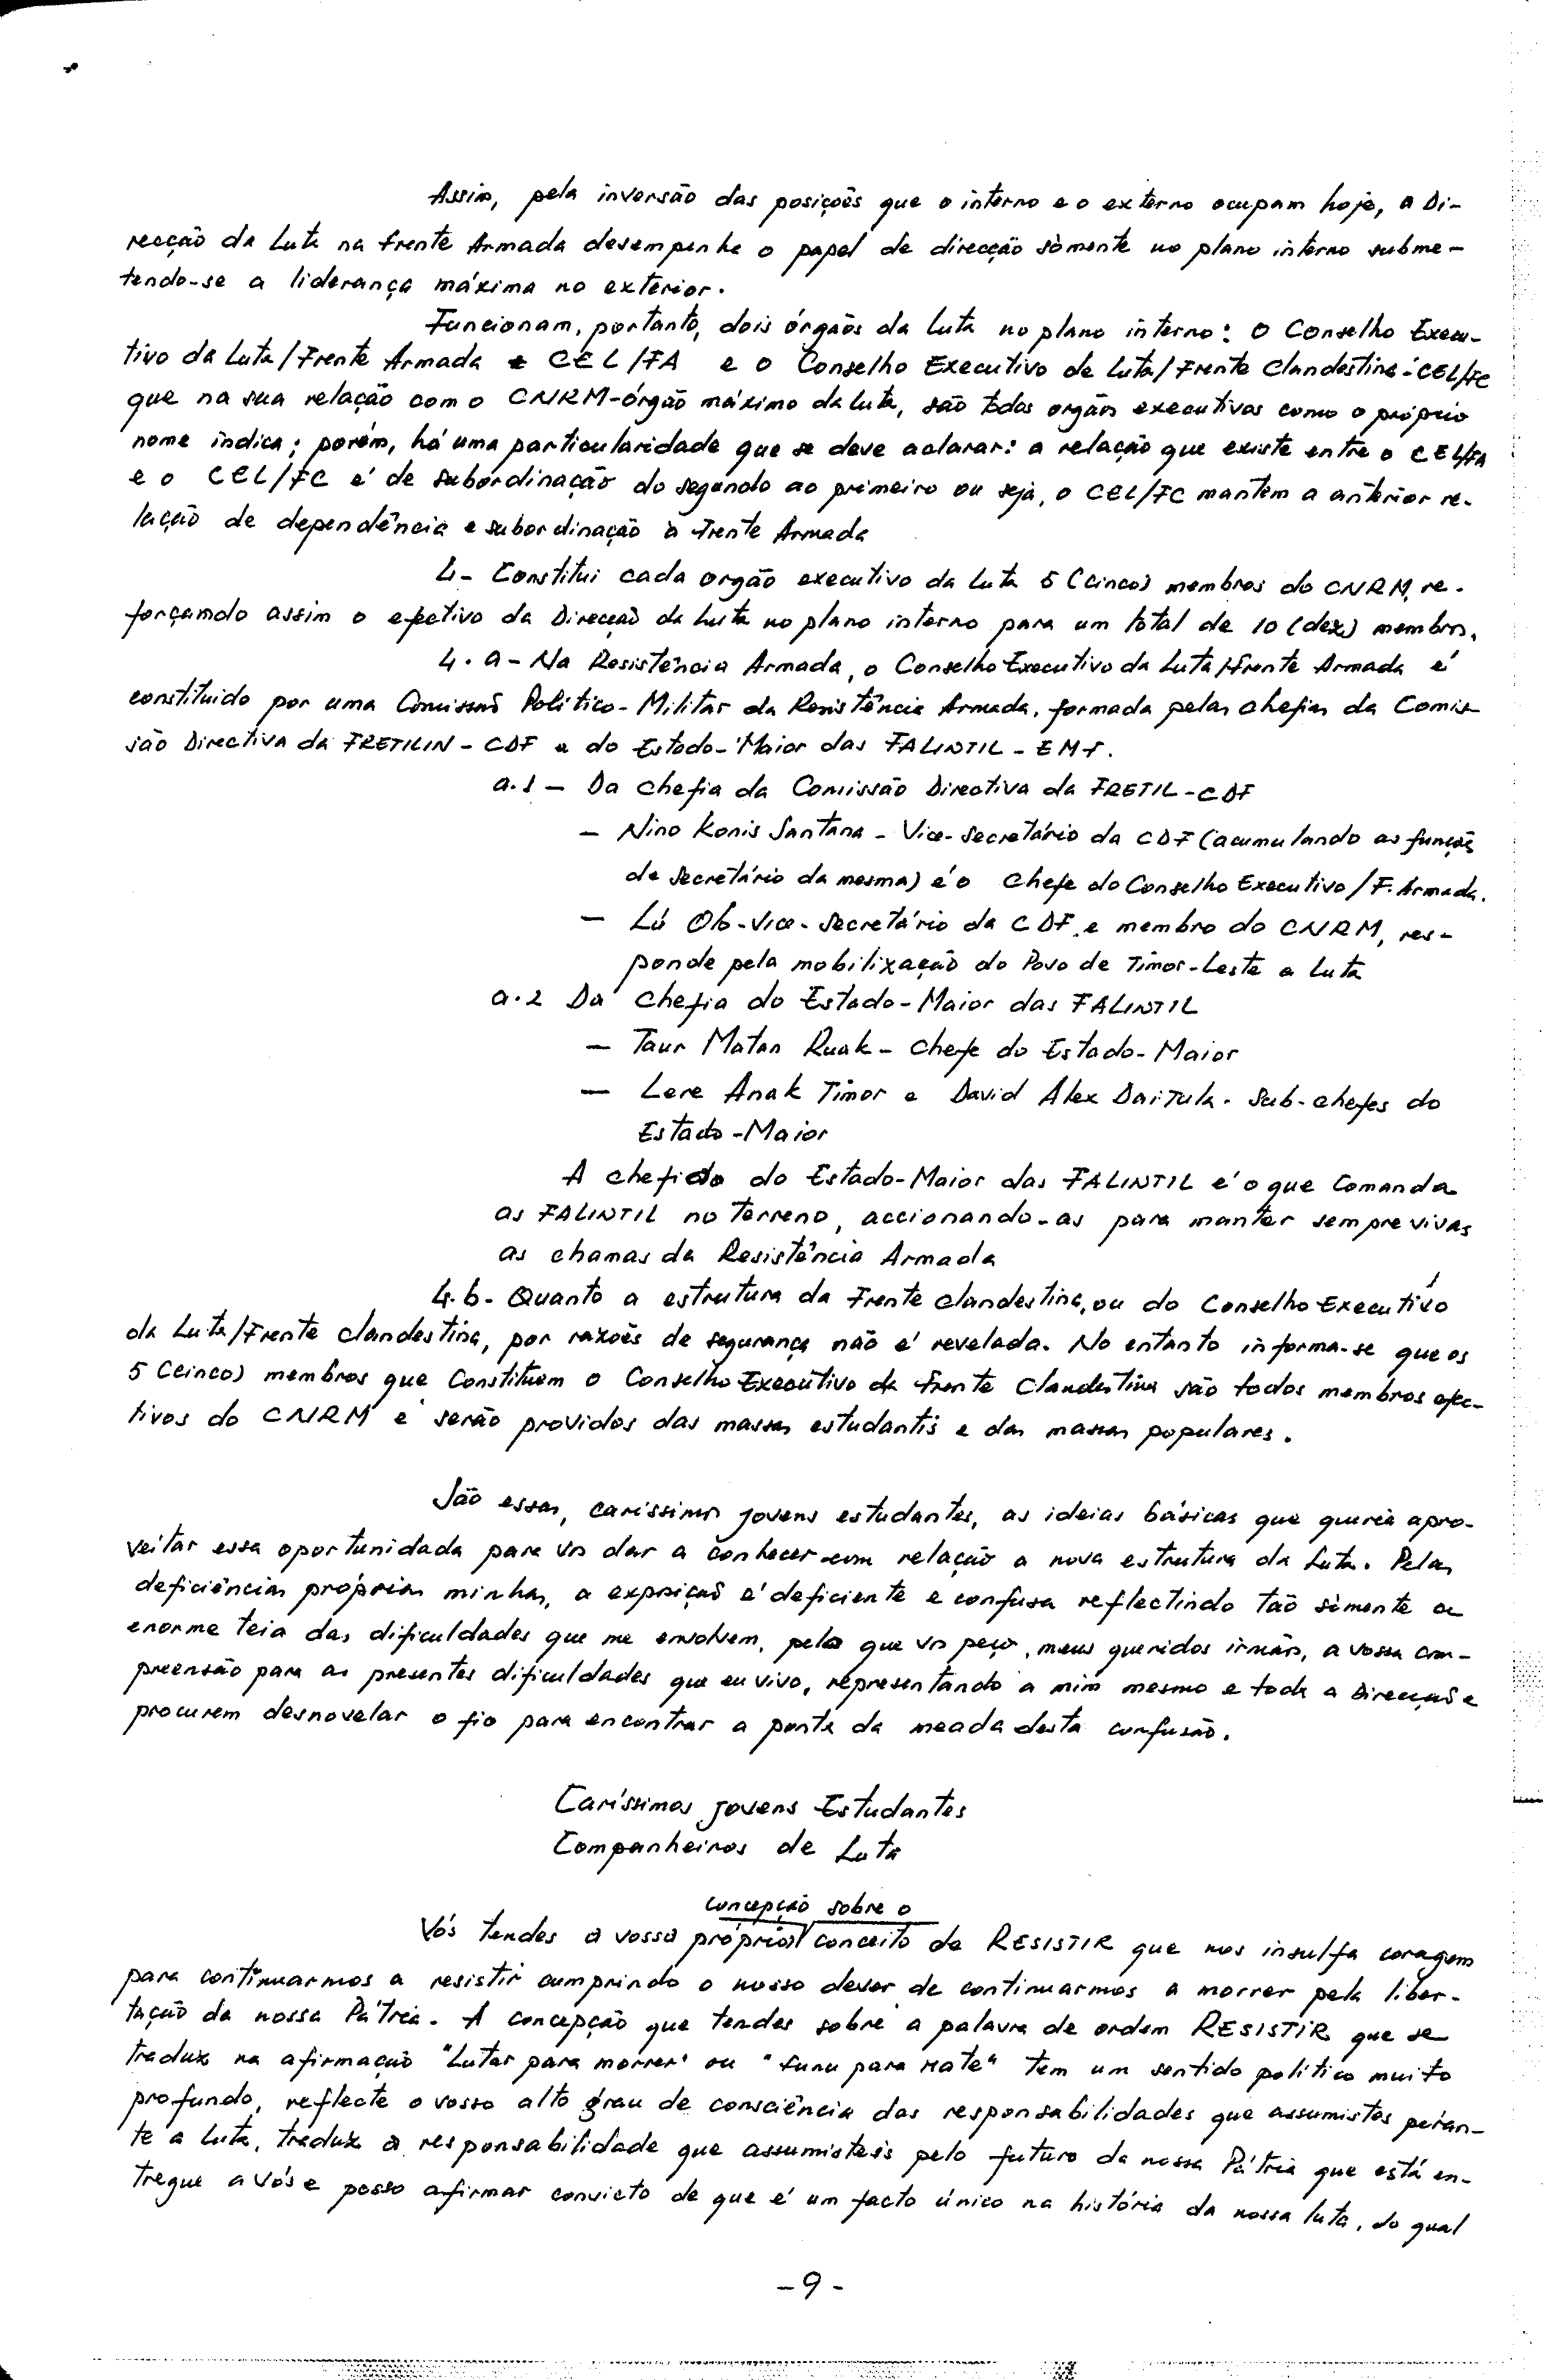 Assim, pela inversão das posições que o interno e o externo ocupam hoje, a Di-
recção da Luta na Frente Armada desempenha o papel de direcção sòmente no plano interno subme-
tendo-se a liderança máxima no exterior.
Funcionam, portanto, dois órgãos da Luta no plano interno: O Conselho Execu-
tivo da Luta/Frente Armada - CEL/FA e o Conselho Executivo da Luta/Frente Clandestina - CEL/FC
que na sua relação com o CNRM-órgão máximo da luta, são todos orgãos executivos como o próprio
nome indica; porém, há uma particularidade que se deve aclarar: a relação que existe entre o CEL/FA
e o CEL/FC é de subordinação do segundo ao primeiro ou seja, o CEL/FC mantem a anterior re-
lação de dependência e subordinação à Frente Armada
4- Constitui cada orgão executivo da Luta 5 (cinco) membros do CNRM, re-
forçando assim o efetivo da Direcção da Luta no plano interno para um total de 10 (dez) membros.
4. a - Na Resistência Armada, o Conselho Executivo da Luta/Frente Armada é
constituido por uma Comissão Político-Militar da Resistência Armada, formada pelas chefias da Comis-
são Directiva da FRETILIN - CDF e do Estado-Maior das FALINTIL - EMF.
a.1 - Da chefia da Comissão Directiva da FRETIL-CDF
- Nino Konis Santana - Vice-Secretário da CDF (acumulando as funções
de Secretário da mesma) é o Chefe do Conselho Executivo/F. Armada.
- Lú Olo - Vice-Secretário da CDF, e membro do CNRM, res-
ponde pela mobilização do Povo de Timor-Leste a Luta
a.2 Da Chefia do Estado-Maior das FALINTIL
- Taur Matan Ruak - Chefe do Estado-Maior
- Lere Anak Timor e David Alex DaiTula - Sub-chefes do
Estado-Maior
A chefia do Estado-Maior das FALINTIL é o que Comanda
as FALINTIL no terreno, accionando-as para manter sempre vivas
as chamas da Resistência Armada
4.b- Quanto a estrutura da Frente Clandestina, ou do Conselho Executivo
da Luta/Frente clandestina, por razões de segurança não é revelada. No entanto informa-se que os
5 (cinco) membros que Constituem o Conselho Executivo da Frente Clandestina são todos membros efec-
tivos do CNRM e serão providos das massas estudantis e das massas populares.
São essas, caríssimos jovens estudantes, as ideias básicas que queria apro-
veitar essa oportunidada para vos dar a conhecer com relação a nova estrutura da Luta. Pelas
deficiências próprias minhas, a exposição é deficiente e confusa reflectindo tão sòmente a
enorme teia das dificuldades que me envolvem, pelo que vos peço, meus queridos irmãos, a vossa com-
preensão para as presentes dificuldades que eu vivo, representando a mim mesmo e toda a Direcção e
procurem desnovelar o fio para encontrar a ponta da meada desta confusão.
Caríssimos jovens Estudantes
Companheiros de Luta
concepção sobre o
Vós tendes a vossa própria conceito de RESISTIR que nos insulfa coragem
para continuarmos a resistir cumprindo o nosso dever de continuarmos a morrer pela liber-
tação da nossa Pátria. A concepção que tendes sobre a palavra de ordem RESISTIR que se
traduz na afirmação "Lutar para morrer" ou "funu para mate" tem um sentido político muito
profundo, reflecte o vosso alto grau de consciência das responsabilidades que assumistes peran-
te a luta, traduz a responsabilidade que assumisteis pelo futuro da nossa Pátria que está en-
tregue a vós e posso afirmar convicto de que é um facto único na história da nossa luta, do qual
- 9 -